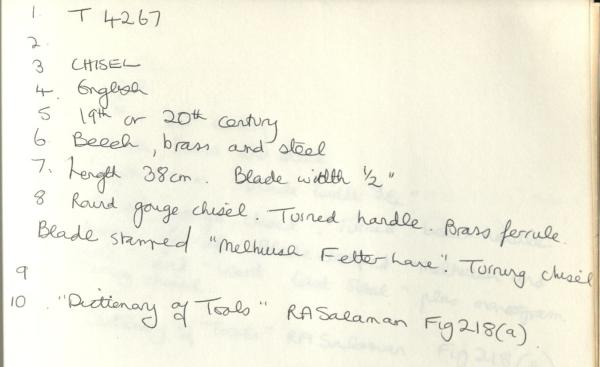 1. T 4267
2.
3 CHISEL
4. English
5 19th or 20th century
6 Beech, brass and steel
7. Length 38cm. Blade width 1/2"
8 Round gouge chisel. Turned handle. Brass ferrule.
Blade stamped "Melhuish Fetter Lane". Turning chisel
9
10. "Dictionary of Tools" RA Salaman Fig 218(a).